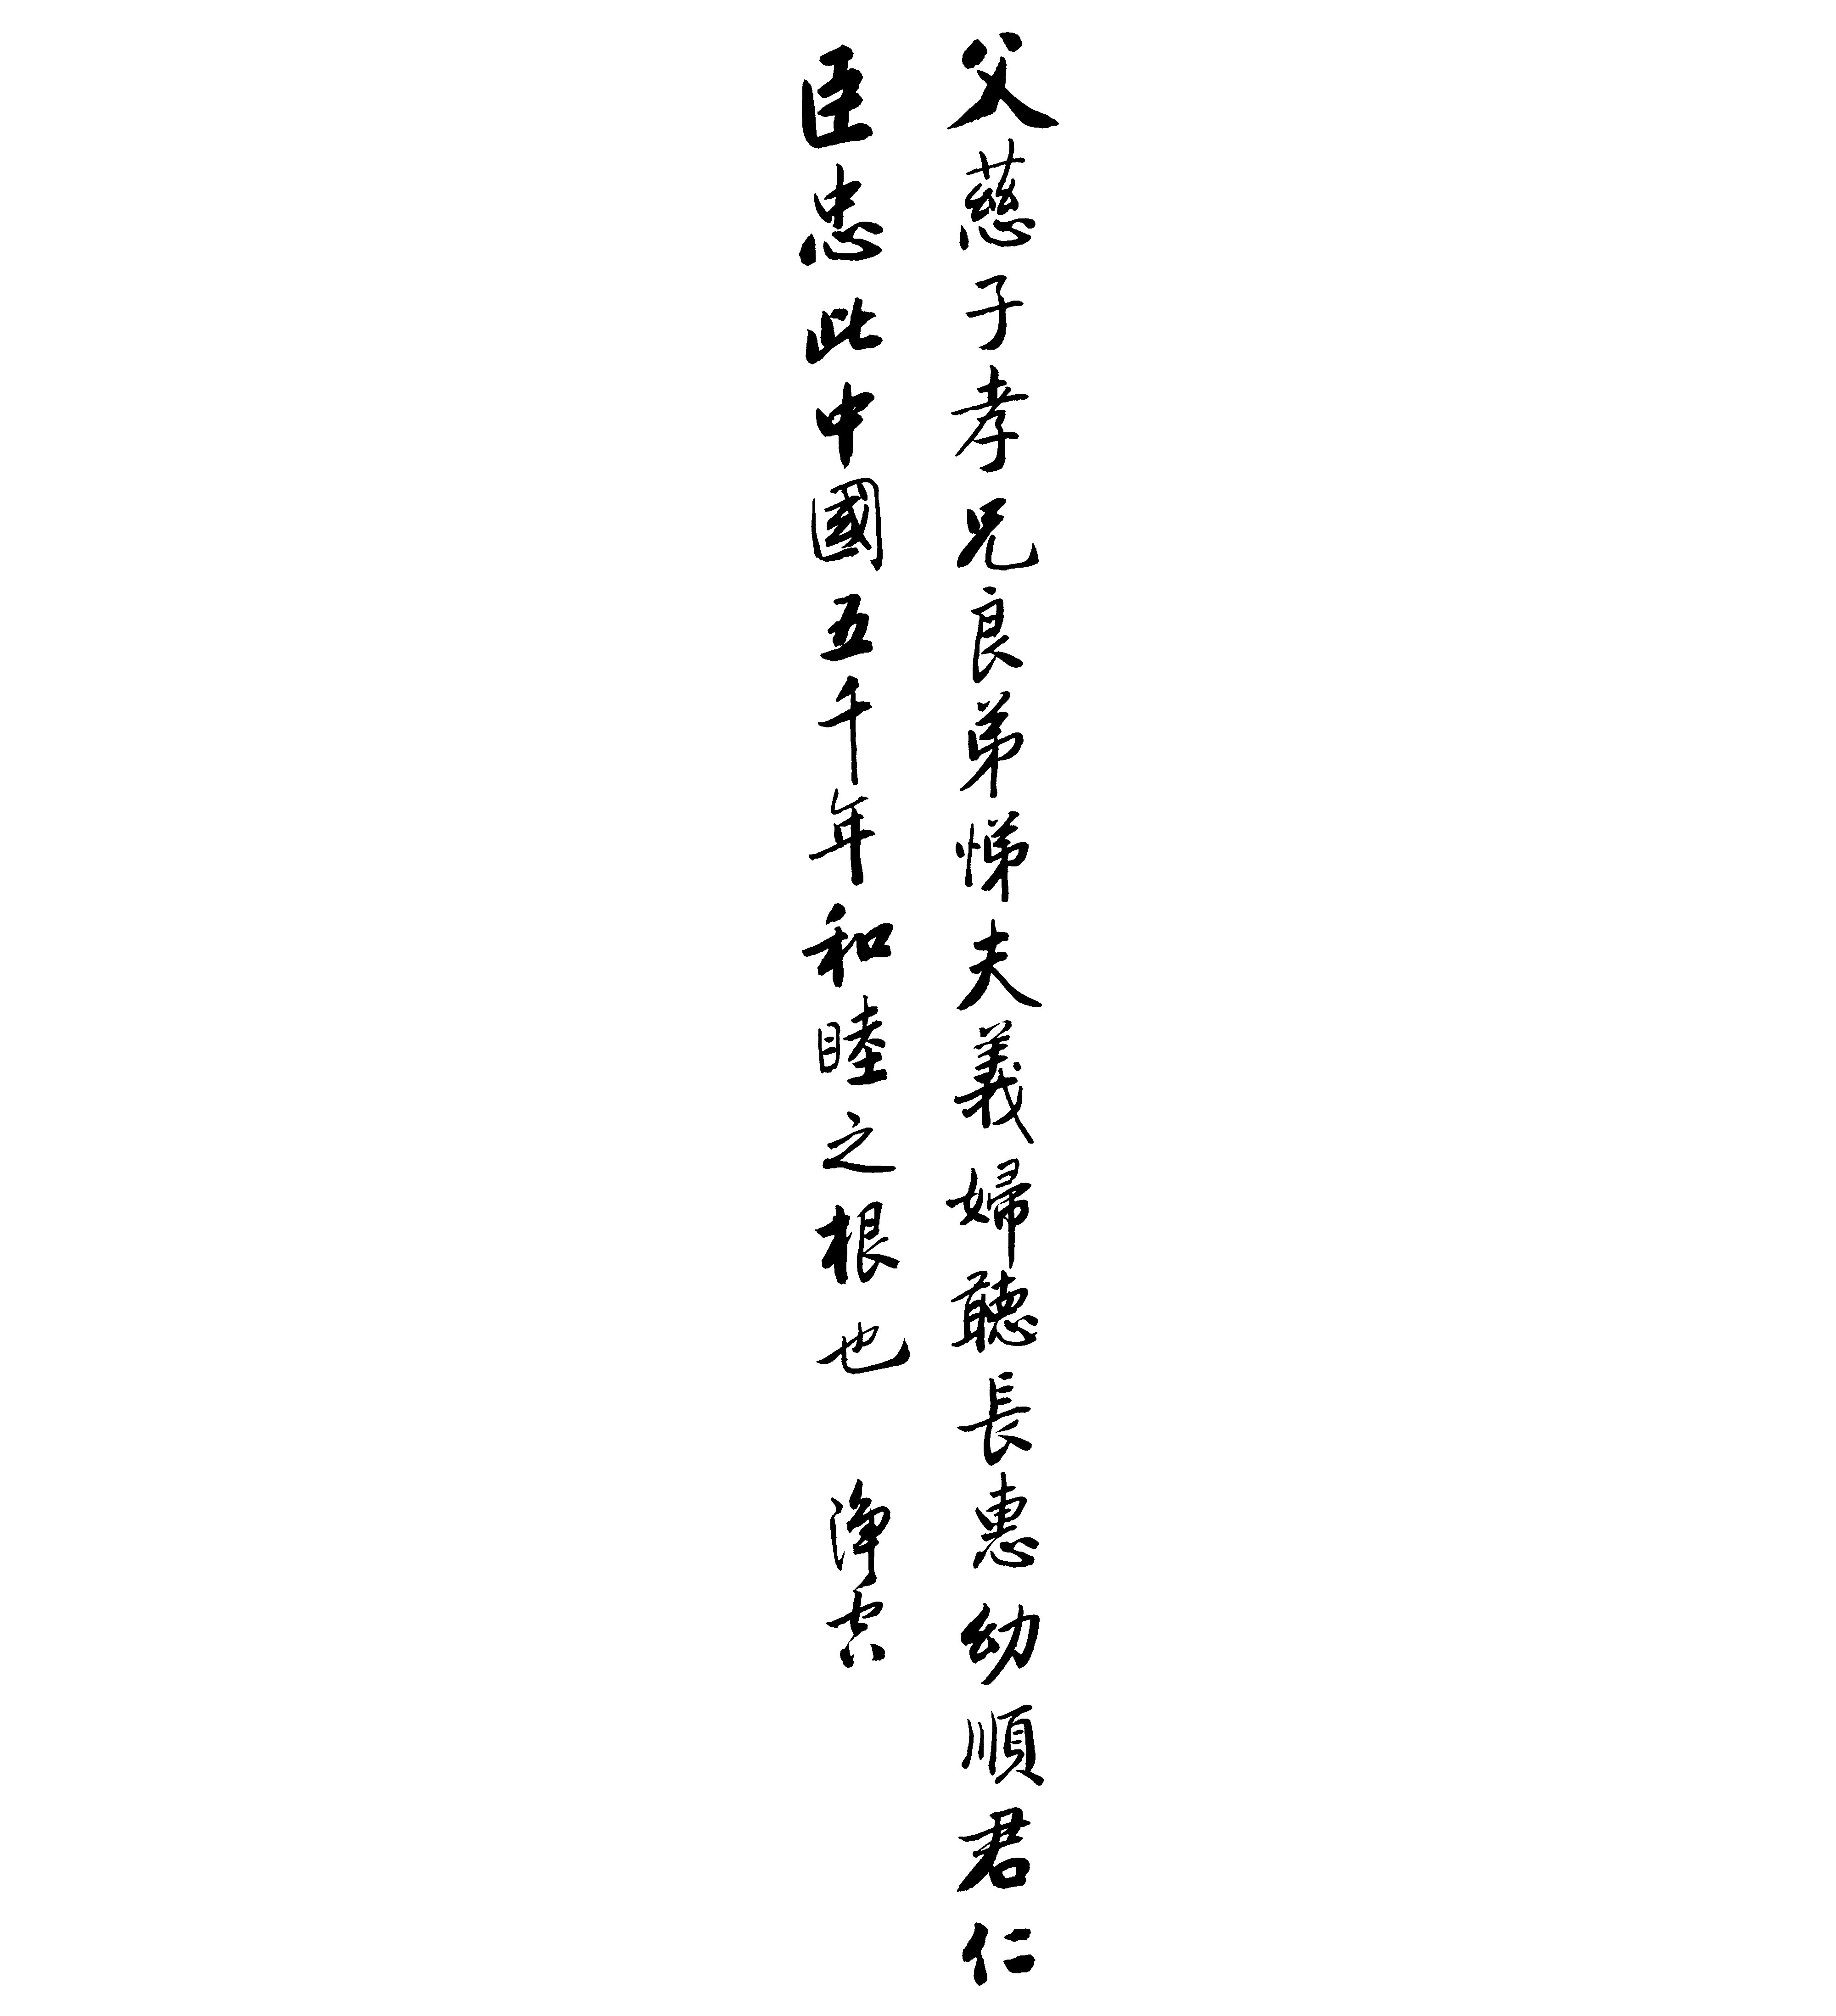 父慈子孝兄良弟悌夫義婦聽長惠幼順君仁
臣忠此中國五千年和睦之根也 淨空